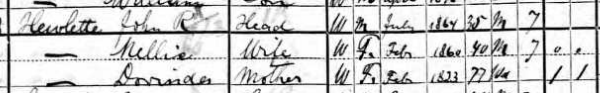 Hewlette John R Head W M July 1864 35 M 7
— Nellie Wife W F Feb 1860 40 M 7 0 0
— Dorinder Mother W F Feb 1823 77 Wd 1 1